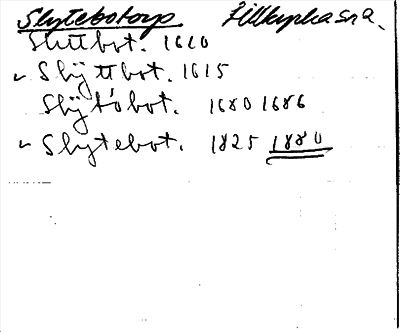 Slytebotorp Fillkyrka sna.
Sluttbot. 1610
✓ Slÿttbot. 1615
Slÿtobot. 1680 1686
✓ Slytebot. 1825 1880